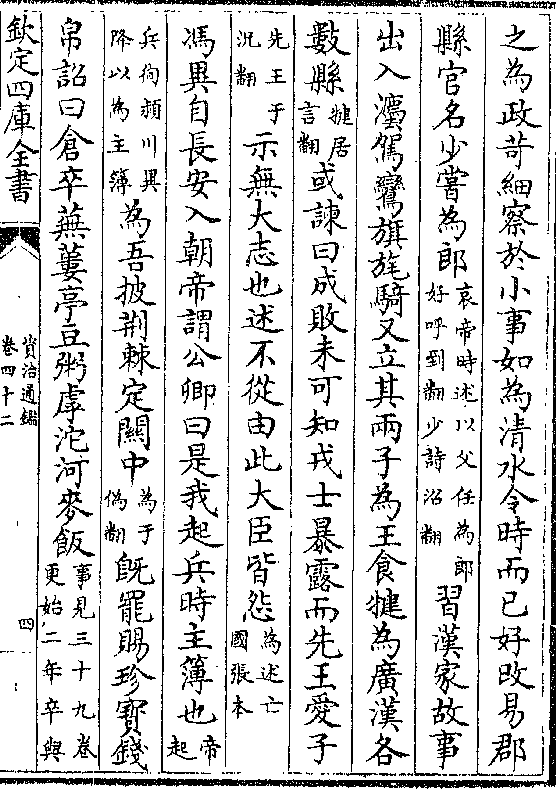 之為政苛細察於小事如為清水令時而已好改易郡
縣官名少嘗為郎哀帝時述以父任為郎好呼到翻少詩沼翻習漢家故事
出入灋駕鸞旗旄騎又立其兩子為王食犍為廣漢各
數縣犍居言翻或諫曰成敗未可知戎士暴露而先王愛子
先王于況翻示無大志也述不從由此大臣皆怨為述亡國張本
馮異自長安入朝帝謂公卿曰是我起兵時主簿也帝起
兵徇潁川異降以為主簿為吾披荆棘定關中為于偽翻既罷賜珍寳錢
帛詔曰倉卒蕪蔞亭豆粥虖沱河麥飯事見三十九卷更始二年卒與
欽定四庫全書
資治通鑑
卷四十二
四